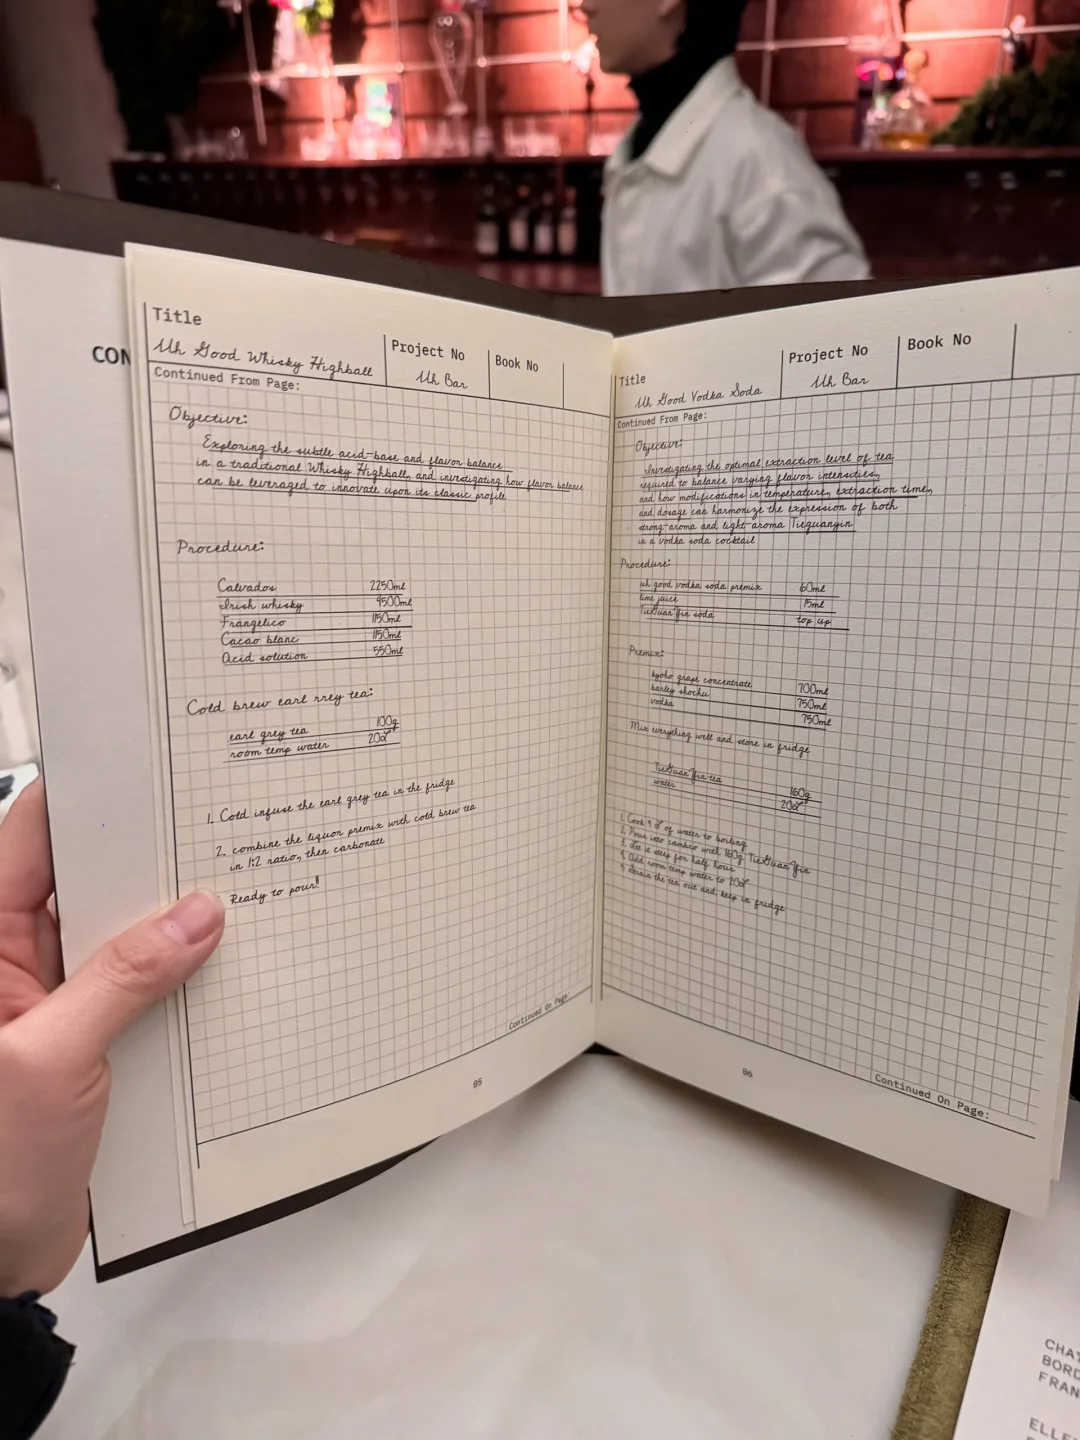 CON
Title
Uh Good Whisky Highball
Project No
Uh Bar
Book No
Continued From Page:
Objective:
Exploring the subtle acid-base and flavor balance
in a traditional Whisky Highball, and investigating how flavor balance
can be leveraged to innovate upon its classic profile
Procedure:
Calvados 2250ml
Irish whisky 4500ml
Frangelico 1150ml
Cacao blanc 1150ml
Acid solution 550ml
Cold brew earl rrey tea:
earl grey tea 100g
room temp water 20L
1. Cold infuse the earl grey tea in the fridge
2. combine the liquor premix with cold brew tea
in 1:2 ratio, then carbonate
Ready to pour!
Continued On Page:
05
Title
Uh Good Vodka Soda
Project No
Uh Bar
Book No
Continued From Page:
Objective:
Investigating the optimal extraction level of tea
required to balance varying flavor intensities,
and how modifications in temperature, extraction time,
and dosage can harmonize the expression of both
strong-aroma and light-aroma Tieguanyin
in a vodka soda cocktail
Procedure:
uh good vodka soda premix 60ml
lime juice 15ml
TieGuanYin soda top up
Premix:
kyoho grape concentrate 700ml
barley shochu 750ml
vodka 750ml
Mix everything well and store in fridge
TieGuanYin tea 160g
water 20L
1. Cook 4 L of water to boiling
2. Pour into cambro with 160g TieGuanYin
3. Let it steep for half hour
4. Add room temp water to 20L
5. Strain the tea out and keep in fridge
06
Continued On Page:
CHA
BORD
FRAN
ELLE